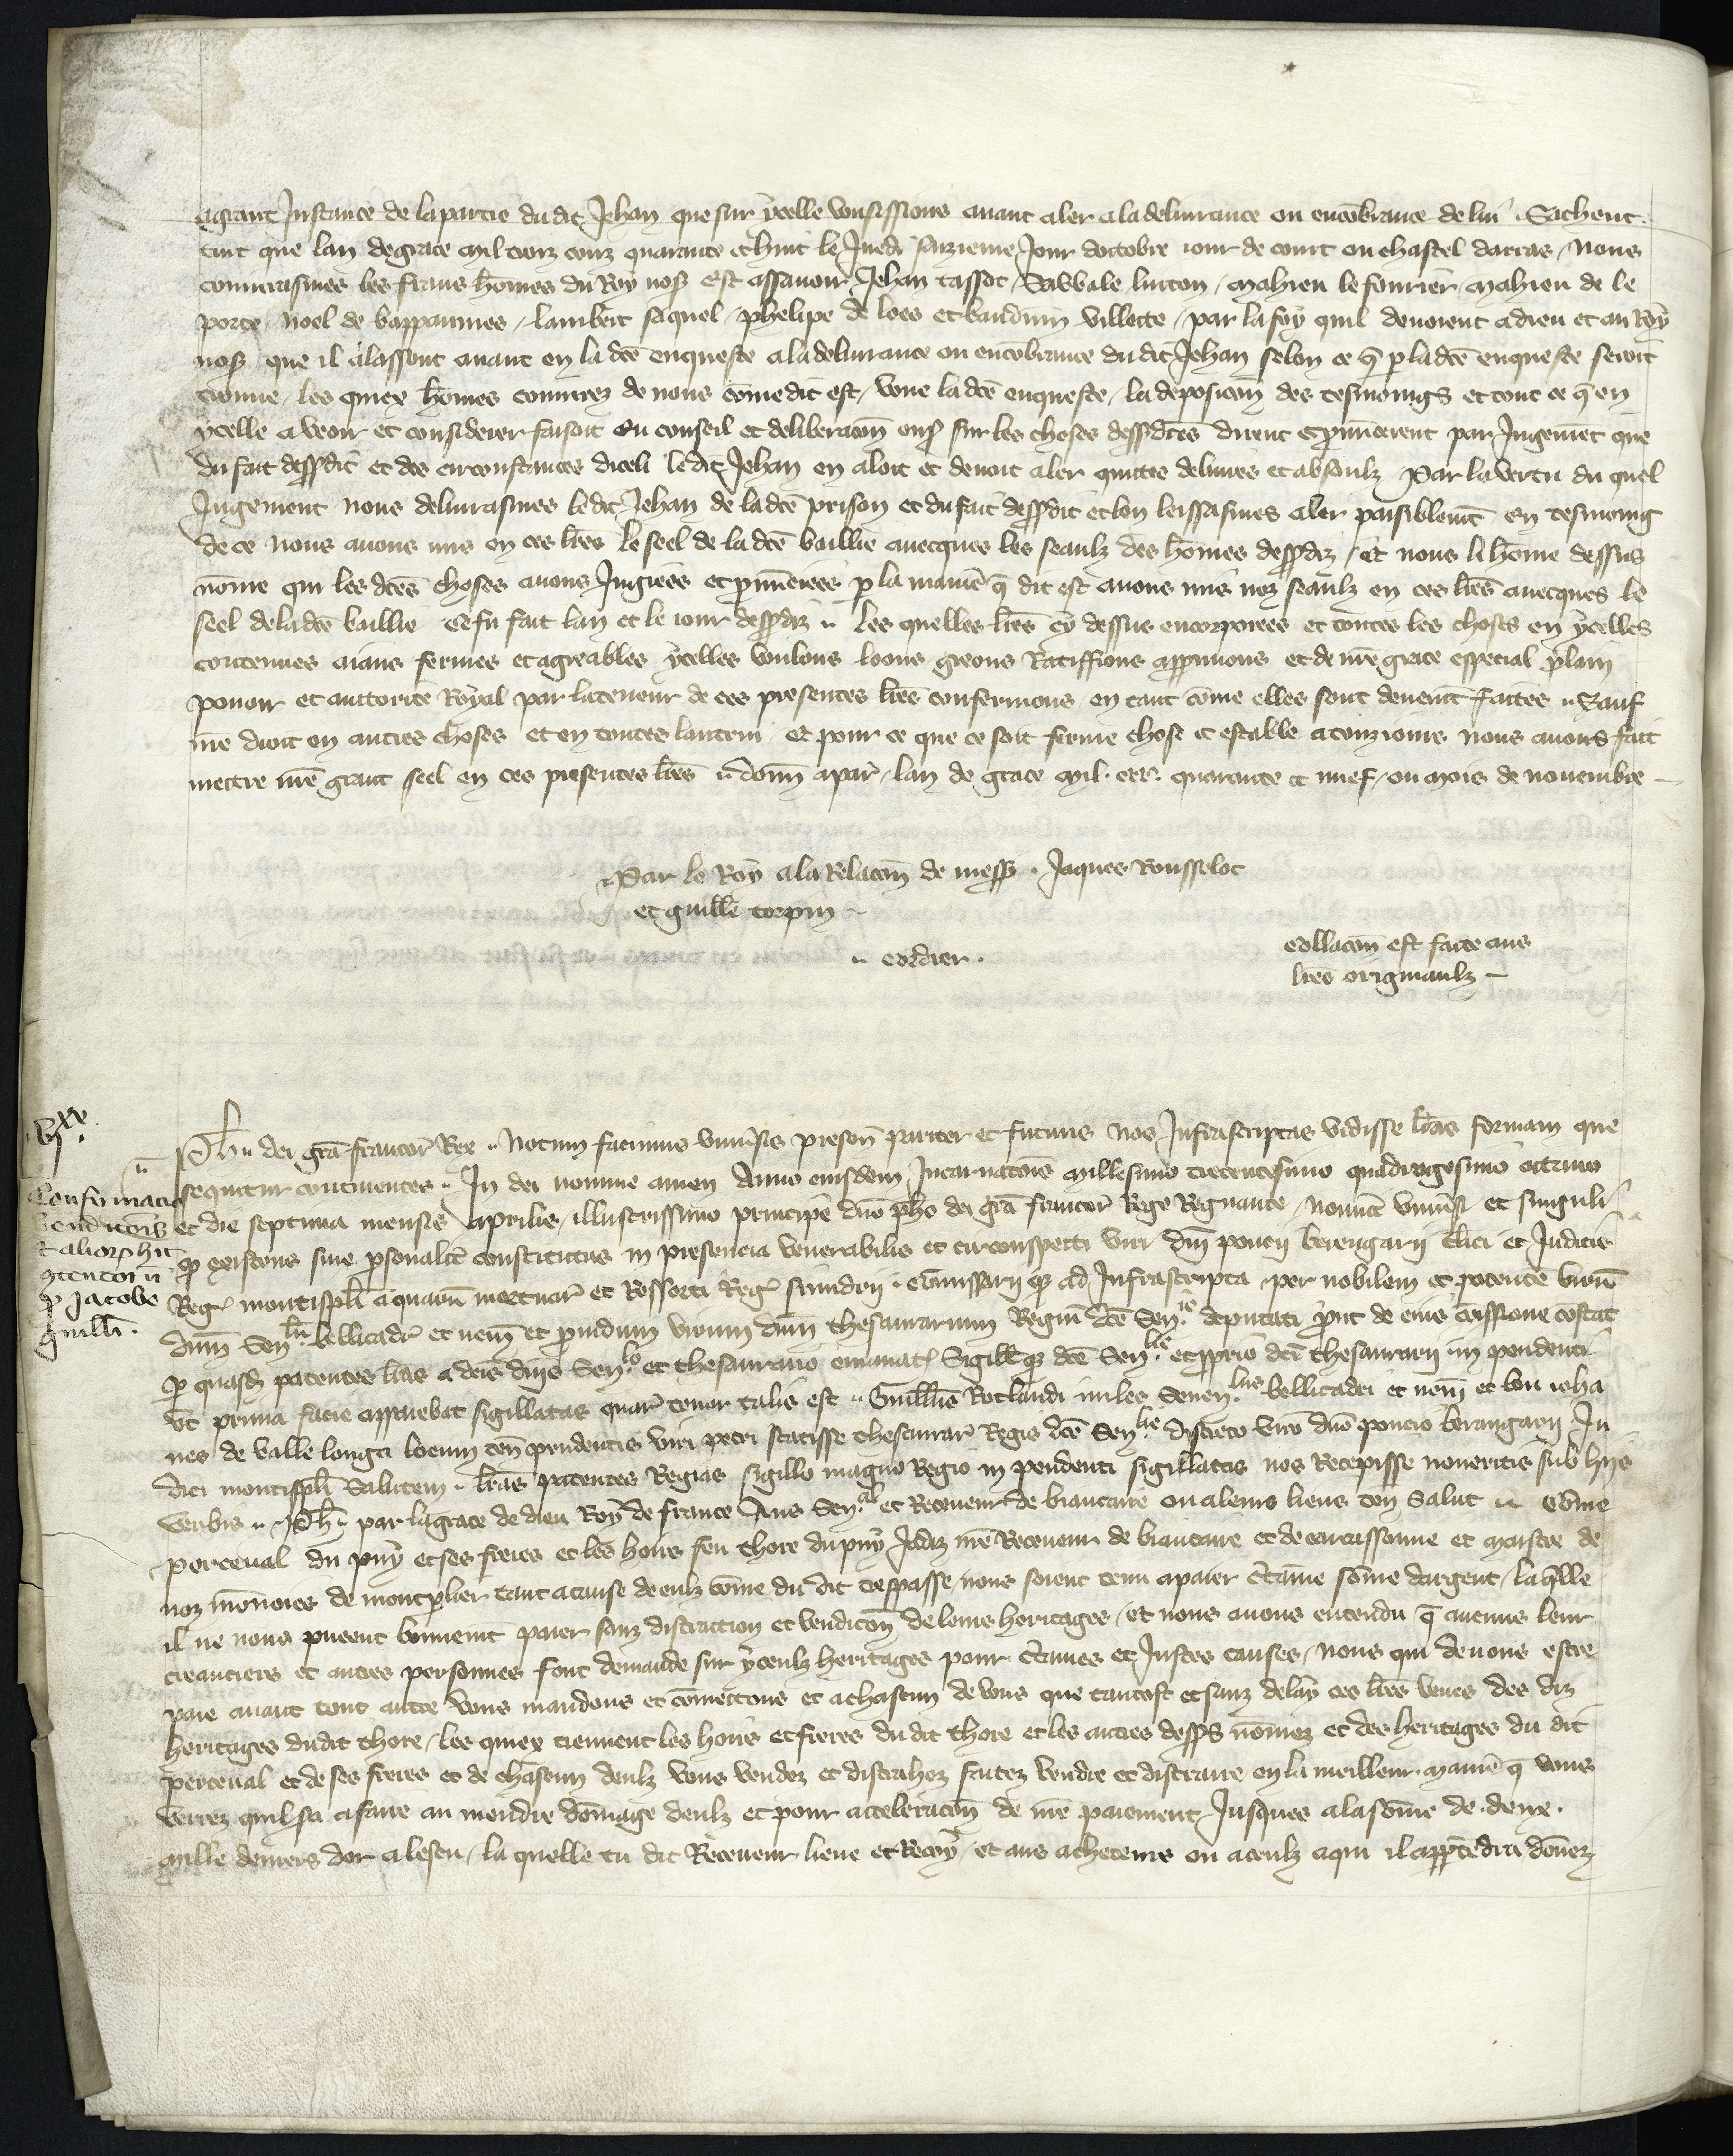 agrant Instance de la partie du dit Jehan que sur ycelle vousissions auant aler a la deliurance ou encōbrance de lui . Sachent
tuit que lan de grace mil trois cenz quarante et huit le Juedi sezieme Jour doctobre iour de court ou chastel darras / Nous
coniurasmes les frans hōmes du Roy nos̃ Cest assauoir Jehan tassot / Vabbale lucton / Mahieu le fourier / Mahieu de le
porte / Noel de bappaumes / lambert saquel / phelipe de loes et bauduin villette / par la foy quil deuoient a dieu et au Roy
nos̃ que il alassent auant en la dc̃e enqueste a la deliurance ou encōbrance du dit Jehan selon ce q̃ p la dc̃e enqueste seroit
trouue / les quiex hōmes coniurez de nous cōme dit est / veue la dc̃e enqueste / la deposicōn des tesmoings et tout ce q̃ en
ycelle a veoir et considerer faisoit Eu conseil et deliberacōn ens̃ sur les choses dess̃dc̃es dirent et p̃nuncerent par Jugemēt que
du fait dess̃dit et des circonstances diceli ledit Jehan en aloit et deuoit aler quitte deliures et absoulz / Par la vertu du quel
Jugement nous deliurasmes ledit Jehan de la dc̃e prison et du fait dess̃dit et len leissasmes aler paisiblem̃t En tesmoing
de ce nous auons mis en ces lr̃es le seel de la dc̃e baillie auecques les seaulz des hōmes dess̃diz / Et nous li hōme dessus
nōme qui les dc̃es choses auons Jugiees et p̃nunciees p la manie᷑ q̃ dit est auons mis noz seaulz en ces lr̃es auecques le
seel de la dc̃e baillie Ce fu fait lan et le iour dess̃diz .. Les quelles lr̃es cy dessus encorporees et toutes les choses en ycelles
contenues aians fermes et agreables ycelles voulons loons greons Ratiffions app̃uuons et de nr̃e grace especial plain
pouoir et auttorite Royal par la teneur de ces presentes lr̃es confermons en tant cōme elles sont deuem̃t faites .. Sauf
nr̃e droit en autres choses et en toutes lautrui Et pour ce que ce soit ferme chose et estable a touziours nous auons fait
mettre nr̃e grant seel en ces presentes lr̃es .. donn̄ a par̃ / lan de grace Mil . ccc . quarante et nuef / ou mois de nouembre
Par le Roy a la Relacōn de mess̃ . Jaques Rousselot
et guille᷑ torpin
.. cordier .
collacōn est faite aus
lr̃es originaulz
vjxx
Confirmacio
vendicois
et alior hic
p̃ Jacobo
guillĩ .
Ph .. dei grã francor Rex .. Notum facimus vniũsis presen̄ pariter et futuris nos Infrascriptas vidisse lr̃as formam que
sequitur continentes .. In dei nomine amen Anno eiusdem Incarnacōis Millesimo trecentesimo quadragesimo octauo
et die septima mensis aprilis / illustrissimo principe dnõ phõ dei grã francor Rege Regnante / Nouint vniũsi et singuli
q existens siue psonalit̃ constitutus in presencia venerabilis et circonspetti viri dnĩ poncij berengarij clic̃i et Judicis
Reg̃ montispli᷑ aquarum mortuar̃ et Ressorti Reg̃ scindrij cōmissarij q ad Infrascripta / per nobilem et potente᷑ virũ
dnm̃ Sen.llũ bellicadr̃ et nem̃ et prouidum virum dnm̃ thesaurarium Regiũ dc̃e Sen.ie deputati p̃ut de eius cōmissione cōstat
p quasd̃ patentes lr̃as a dcĩs dnis Sen.lo et thesaurario emanat̃ Sigillisq dc̃e Sen.lie et p̃prio dcĩ thesaurarij in pendenti
vt prima facie apparebat sigillatas quar̃ tenor talis est .. Guills̃ Rotlandi miles Senen.lus bellicadri et nem̃ et bn̄ ioha
nes de valle longa locum ten̄ prudentis viri petri scatisse thesaurar̃ Regis dc̃e Sen.lie discreto viro dnõ poncio berengarij Ju
dici montispli᷑ Salutem . lr̃as patentes Regias sigillo magno Regio in pendenti sigillatas nos Recepisse noueritis sub hijs
verbis .. Ph .. par la grace de dieu Roy de france Aus Sen.al et Receueur de biaucaire ou a leurs lieus ten̄ Salut .. Cōme
perceual du puy et ses freres et les hoirs feu thore du puy Jadiz nr̃e Receueur de biaucaire et de carcassonne et maistre de
noz mōnoies de montpl̃ier tant a cause de eulz cōme du dit trespasse / nous soient tenu a paier c̃taine sōme dargent / la q̃lle
il ne nous pueent bonnem̃t paier sanz distraction et vendicōn de leurs heritages / Et nous auons entendu q̃ aucuns leur
creanciers et autres personnes font demande sur yceulz heritages pour c̃taines et Justes causes / Nous qui deuons estre
paie auant tout autre vous mandons et cōmettons et a chascun de vous que tantost et sanz delay ces lr̃es veues des diz
heritages dudit thore / les quiex tiennent les hoirs et freres du dit thore et les autres dess̃s nōmez et des heritages du dit
perceual et de ses freres et de chascun deulz vous vendez et distrahez faites vendre et distraire en la meilleur manie᷑ q̃ vous
verrez quil sera a faire au mendre dōmage deulz et pour acceleracōn de nr̃e paiement Jusques a la sōme de . deux .
mille deniers dor a lescu / la quelle tu dit Receueur lieue et Recoy / et aus acheteurs ou a ceulz a qui il app̃tẽdra dōnez